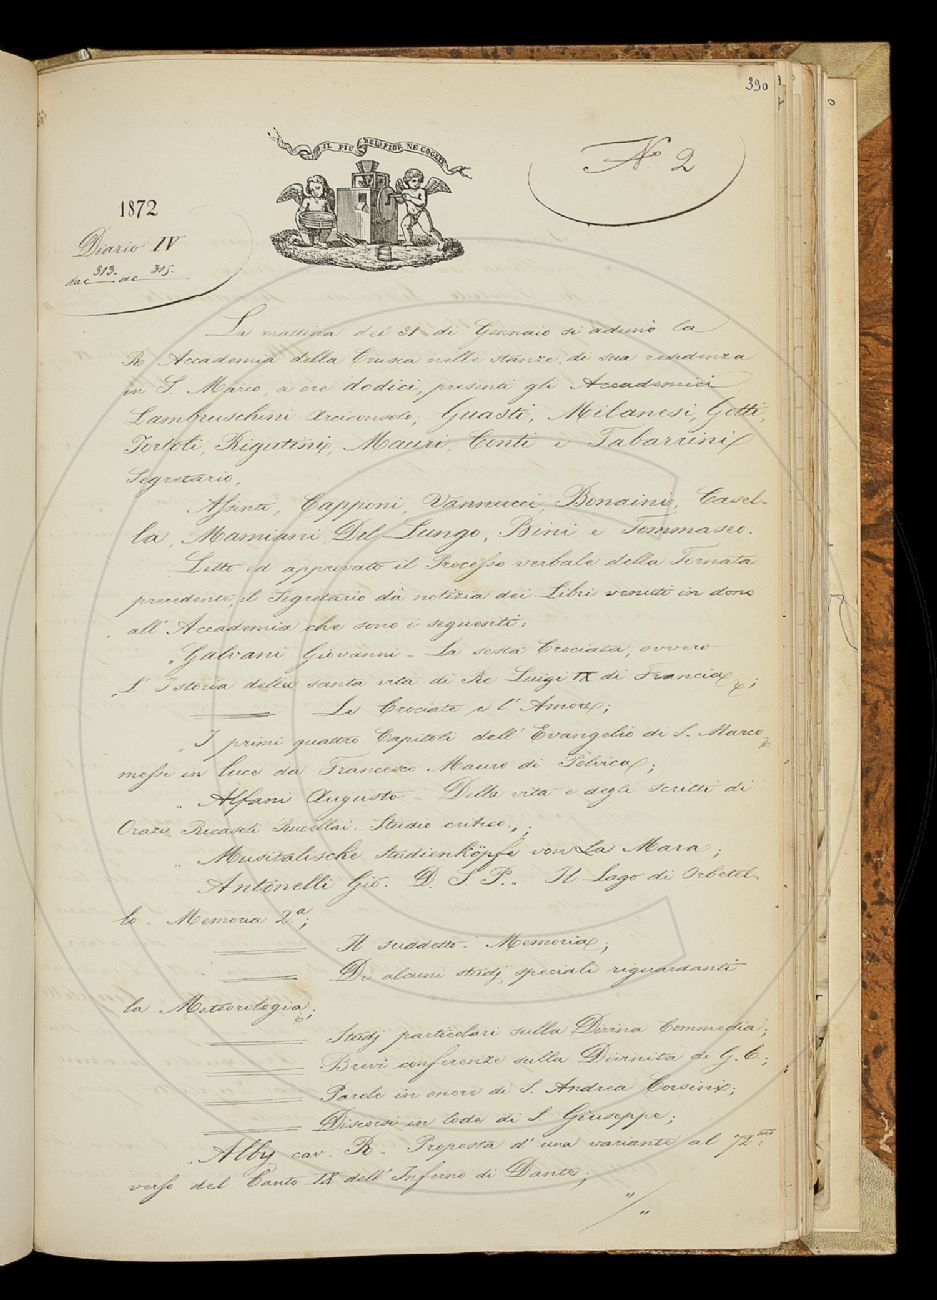 390
IL PIÙ BEL FIOR NE COGLIE
N.º 2
1872
Diario IV
da c 313. a c 315.
La mattina del 31 di Gennaio si adunò la
R. Accademia della Crusca nelle stanze di sua residenza
in S. Marco, a ore dodici, presenti gli Accademici
Lambruschini Arciconsolo, Guasti, Milanesi, Gotti,
Tortoli, Rigutini, Mauri, Conti e Tabarrini
Segretario,
Assenti, Capponi, Vannucci, Bonaini, Casel-
la, Mamiani, Del Lungo, Bini e Tommaseo.
Letto ed approvato il Processo verbale della Tornata
precedente, il Segretario dà notizia dei Libri venuti in dono
all' Accademia che sono i seguenti:
„ Galvani Giovanni - La sesta Crociata, ovvero
L' Istoria della santa vita di Re Luigi IX di Francia;
Le Crociate e l' Amore;
„ I primi quattro Capitoli dell' Evangelio di S. Marco
messi in luce da Francesco Mauro di Polvica;
„ Alfani Augusto - Della vita e degli scritti di
Orazio Ricasoli Rucellai. Studio critico;
„ Musikalische Studienköpfe von La Mara;
„ Antonelli Gio. D. S. P. Il Lago di Orbetel-
lo - Memoria 2.ª;
Il suddetto - Memoria;
Di alcuni studj speciali riguardanti
la Meteorologia;
Studj particolari sulla Divina Commedia;
Brevi conferenze sulla Divinità di G. C.;
Parole in onore di S. Andrea Corsini;
Discorsi in lode di S. Giuseppe;
„ Alby cav. R. - Proposta d' una variante al 72.mo
verso del Canto IX dell' Inferno di Dante;